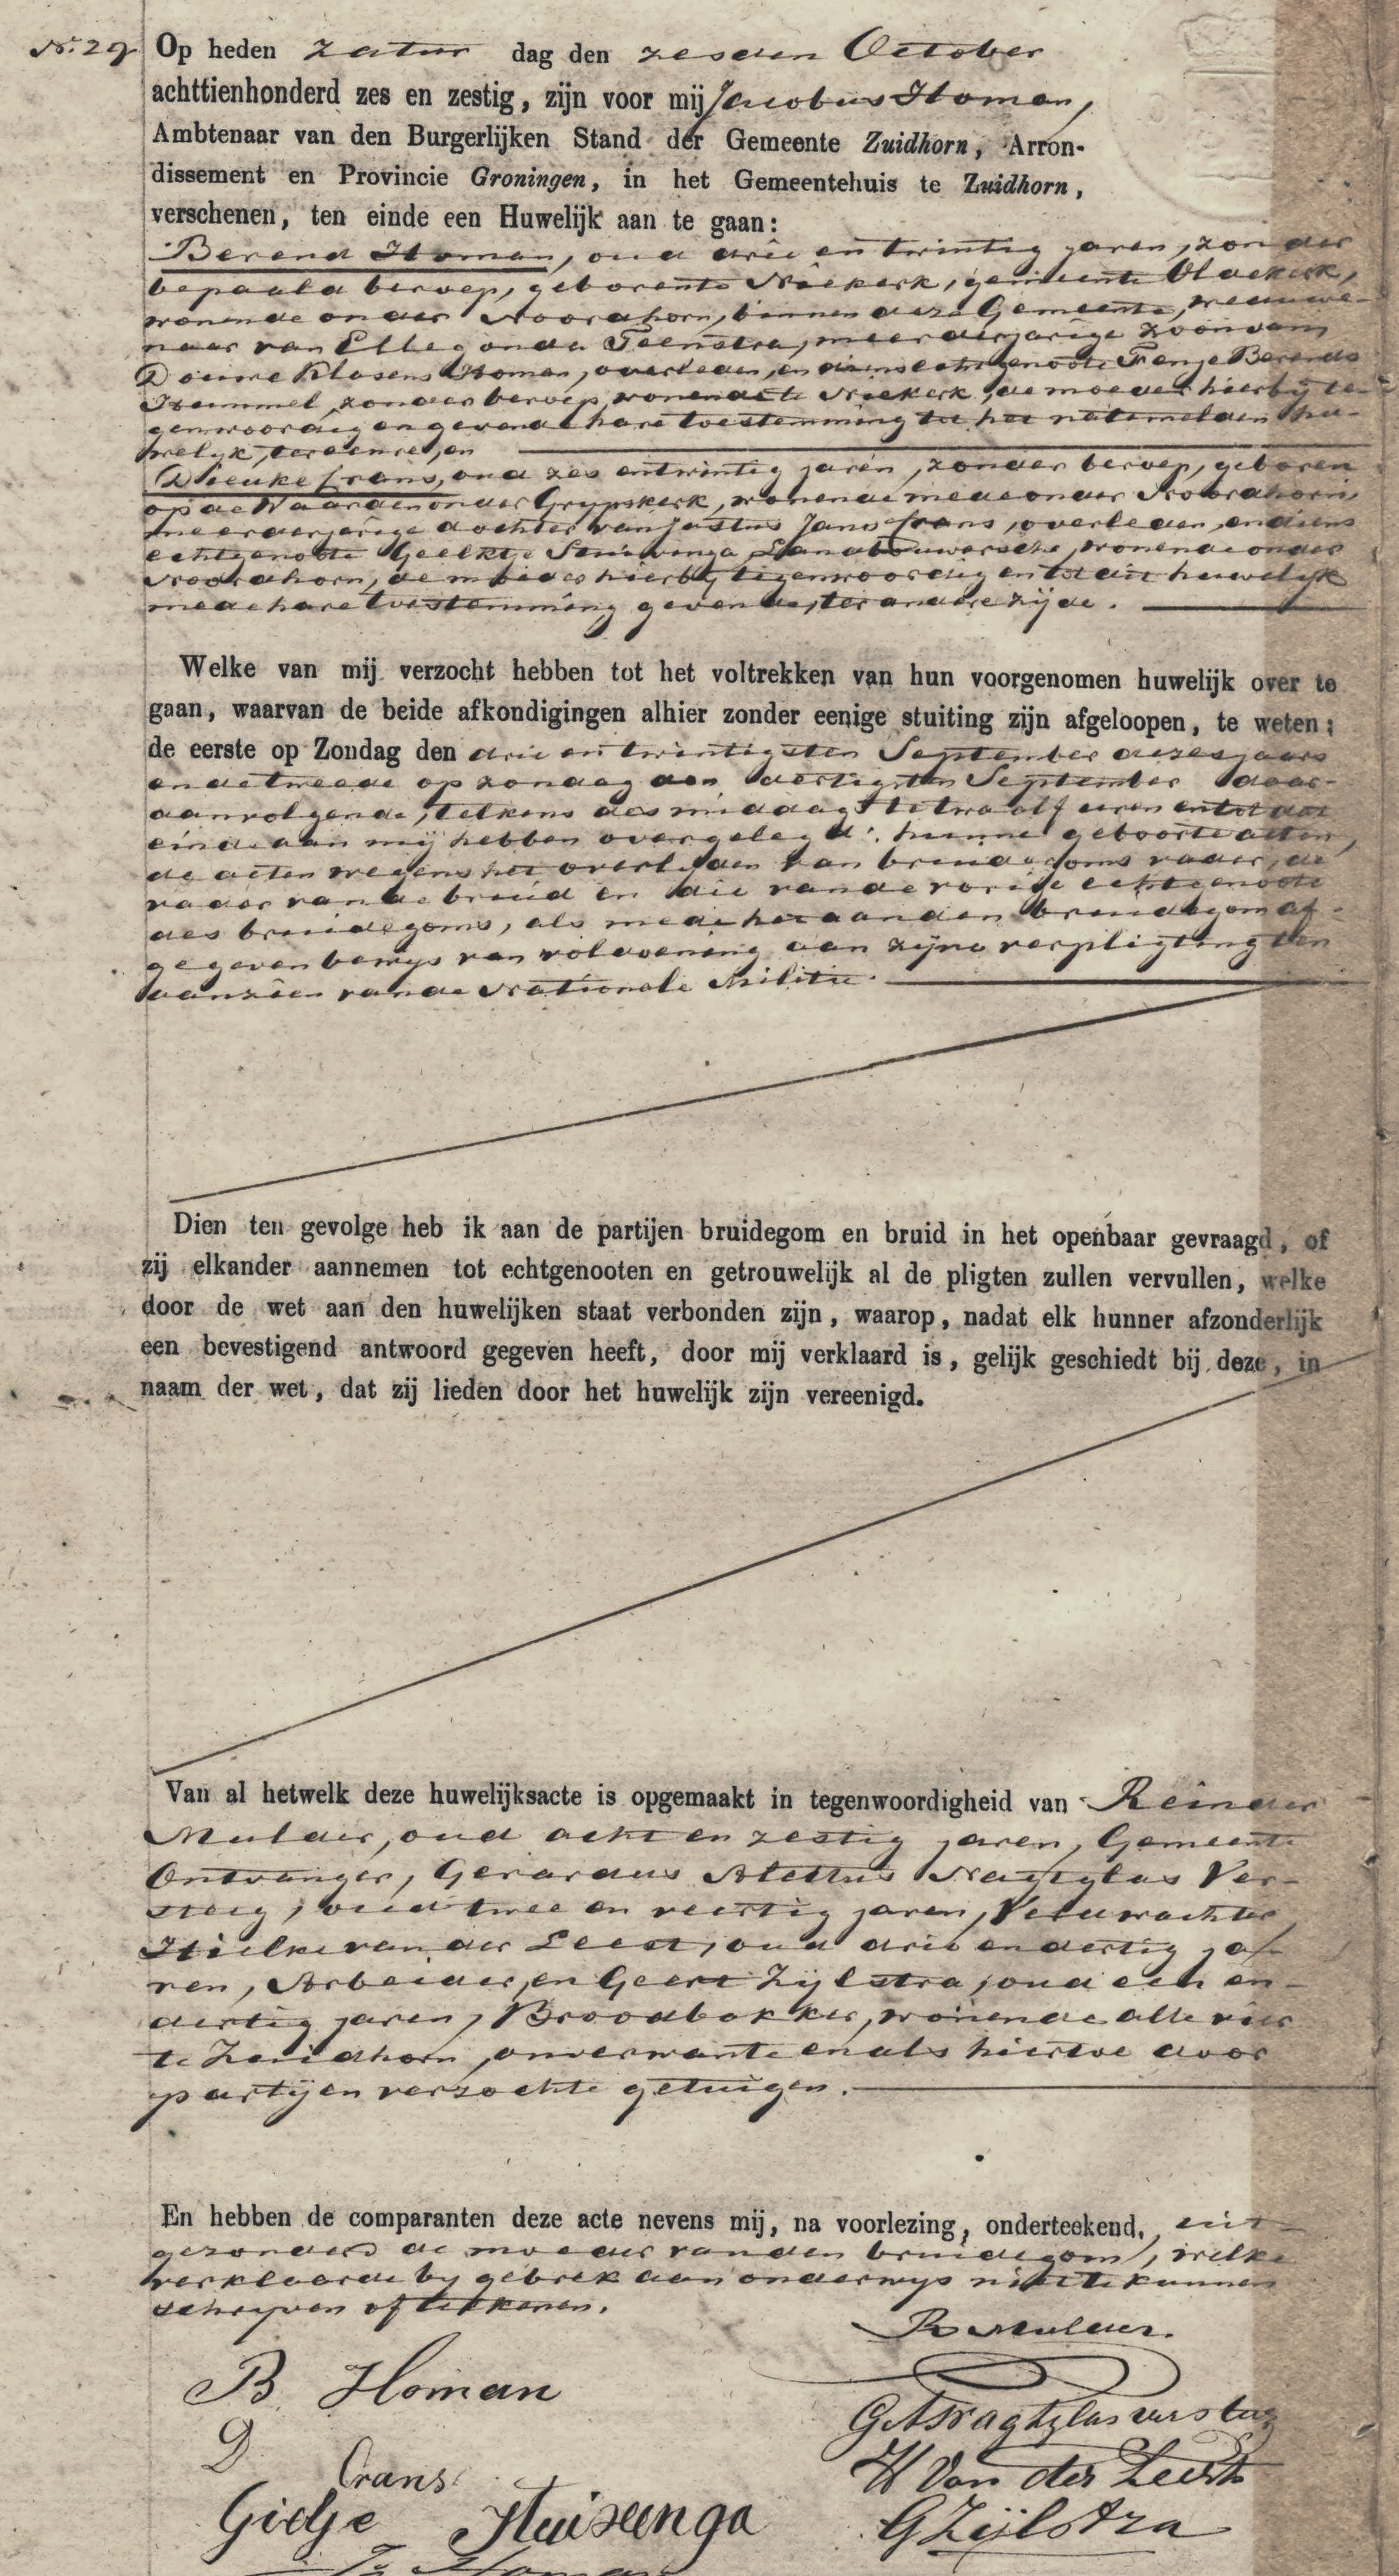 N. 29 Op heden zatur dag den zesden October
achttienhonderd zes en zestig, zijn voor mij Jacobus Homan,
Ambtenaar van den Burgerlijken Stand der Gemeente Zuidhorn, Arron-
dissement en Provincie Groningen, in het Gemeentehuis te Zuidhorn,
verschenen, ten einde een Huwelijk aan te gaan:
Berend Homan, oud drie en twintig jaren, zonder
bepaald beroep, geboren te Niekerk, gemeente Oldekerk,
wonende onder Noordhorn, binnen deze Gemeente, weduwe-
naar van Ellegonda Teenstra, meerderjarige zoon van
Douwe Klasens Homan, overleden, en diens echtgenoote Fenje Berends
Hummel, zonder beroep, wonende te Niekerk, de moeder hierbij te-
genwoordig en gevende hare toestemming tot het natemelden hu-
welijk, ter eenre, en
Dieuke Crans, oud zes en twintig jaren, zonder beroep, geboren
op de Waarden onder Grypskerk, wonende mede onder Noordhorn,
meerderjarige dochter van Justus Jans Crans, overleden, en diens
echtgenoote Landbouwersche, wonende onder
Noordhorn, de moeder hierbij tegenwoordig en tot dit huwelijk
mede hare toestemming gevende, ter andere zijde.
Welke van mij verzocht hebben tot het voltrekken van hun voorgenomen huwelijk over te
gaan, waarvan de beide afkondigingen alhier zonder eenige stuiting zijn afgeloopen, te weten:
de eerste op Zondag den drie en twintigsten September dezes jaars
en de tweede op zondag den dertigsten September daar-
aanvolgende, telkens des middags te twaalf uren en tot dat
einde aan mij hebben overgelegd: hunne geboorte acten,
de acten wegens het overlyden van bruidegoms vader, de
vader van de bruid en die van de vorige echtgenoote
des bruidegoms, als mede het aan den bruidegom af-
gegeven bewys van voldoening aan zyne verpligting ten
aanzien van de Nationale Militie.
Dien ten gevolge heb ik aan de partijen bruidegom en bruid in het openbaar gevraagd, of
zij elkander aannemen tot echtgenooten en getrouwelijk al de pligten zullen vervullen, welke
door de wet aan den huwelijken staat verbonden zijn, waarop, nadat elk hunner afzonderlijk
een bevestigend antwoord gegeven heeft, door mij verklaard is, gelijk geschiedt bij deze, in
naam der wet, dat zij lieden door het huwelijk zijn vereenigd.
Van al hetwelk deze huwelijksacte is opgemaakt in tegenwoordigheid van Reinder
Mulder, oud acht en zestig jaren, Gemeente
Ontvanger, Gerardus Alettus Nagtglas Ver-
steeg, oud twee en veertig jaren, Veldwachter,
Hielke van der Leest, oud drie en dertig ja-
ren, Arbeider, en Geert Zijlstra, oud een en
dertig jaren, Broodbakker, wonende alle vier
te Zuidhorn, onverwante en als hiertoe door
partijen verzochte getuigen.
En hebben de comparanten deze acte nevens mij, na voorlezing, onderteekend, uit-
gezonderd de moeder van den bruidegom, welke
verklaarde by gebrek aan onderwys niet te kunnen
schryven of teekenen.
R Mulder.
B Homan
G A Nagtglas versteeg
D Crans
H Van der Leest
Gielje Huizenga
G Zijlstra
J Homan